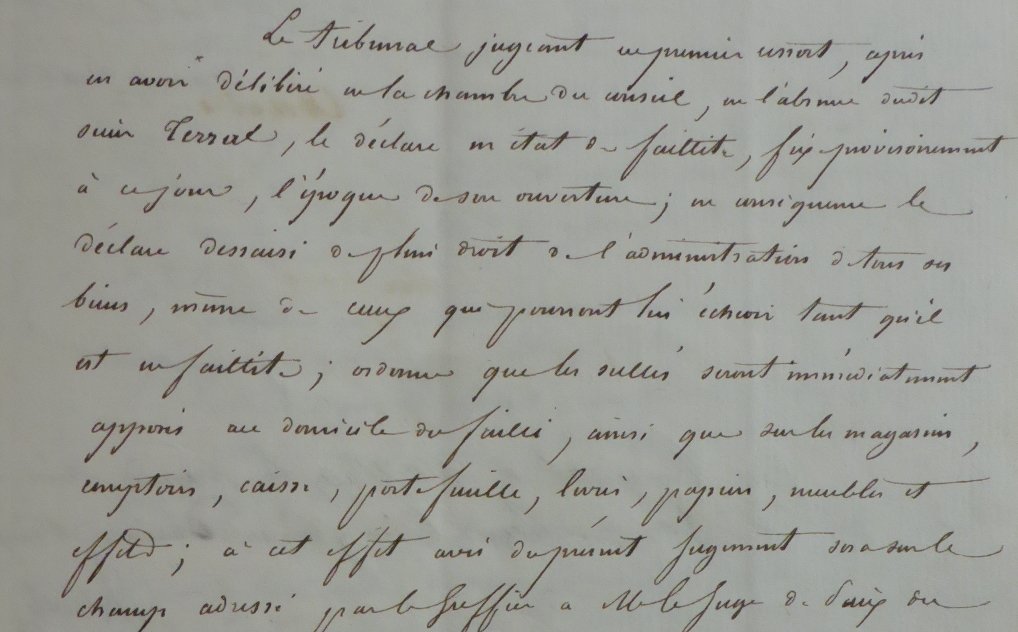 Le Tribunal jugeant en premier ressort, après
en avoir délibéré en la chambre du conseil, en l'absence dudit
sieur Terral, le déclare en état de faillite, fixe provisoirement
à ce jour, l'époque de son ouverture; en conséquence le
déclare dessaisi de plein droit de l'administration de tous ses
biens, même de ceux que pourront lui échoir tant qu'il
est en faillite; ordonne que les scellés seront immédiatement
apposés au domicile du failli, ainsi que sur les magasins,
comptoirs, caisse, portefeuille, livres, papiers, meubles et
effets; à cet effet avis du présent jugement sera sur le
champ adressé par le Greffier a Mr le Juge de Paix du